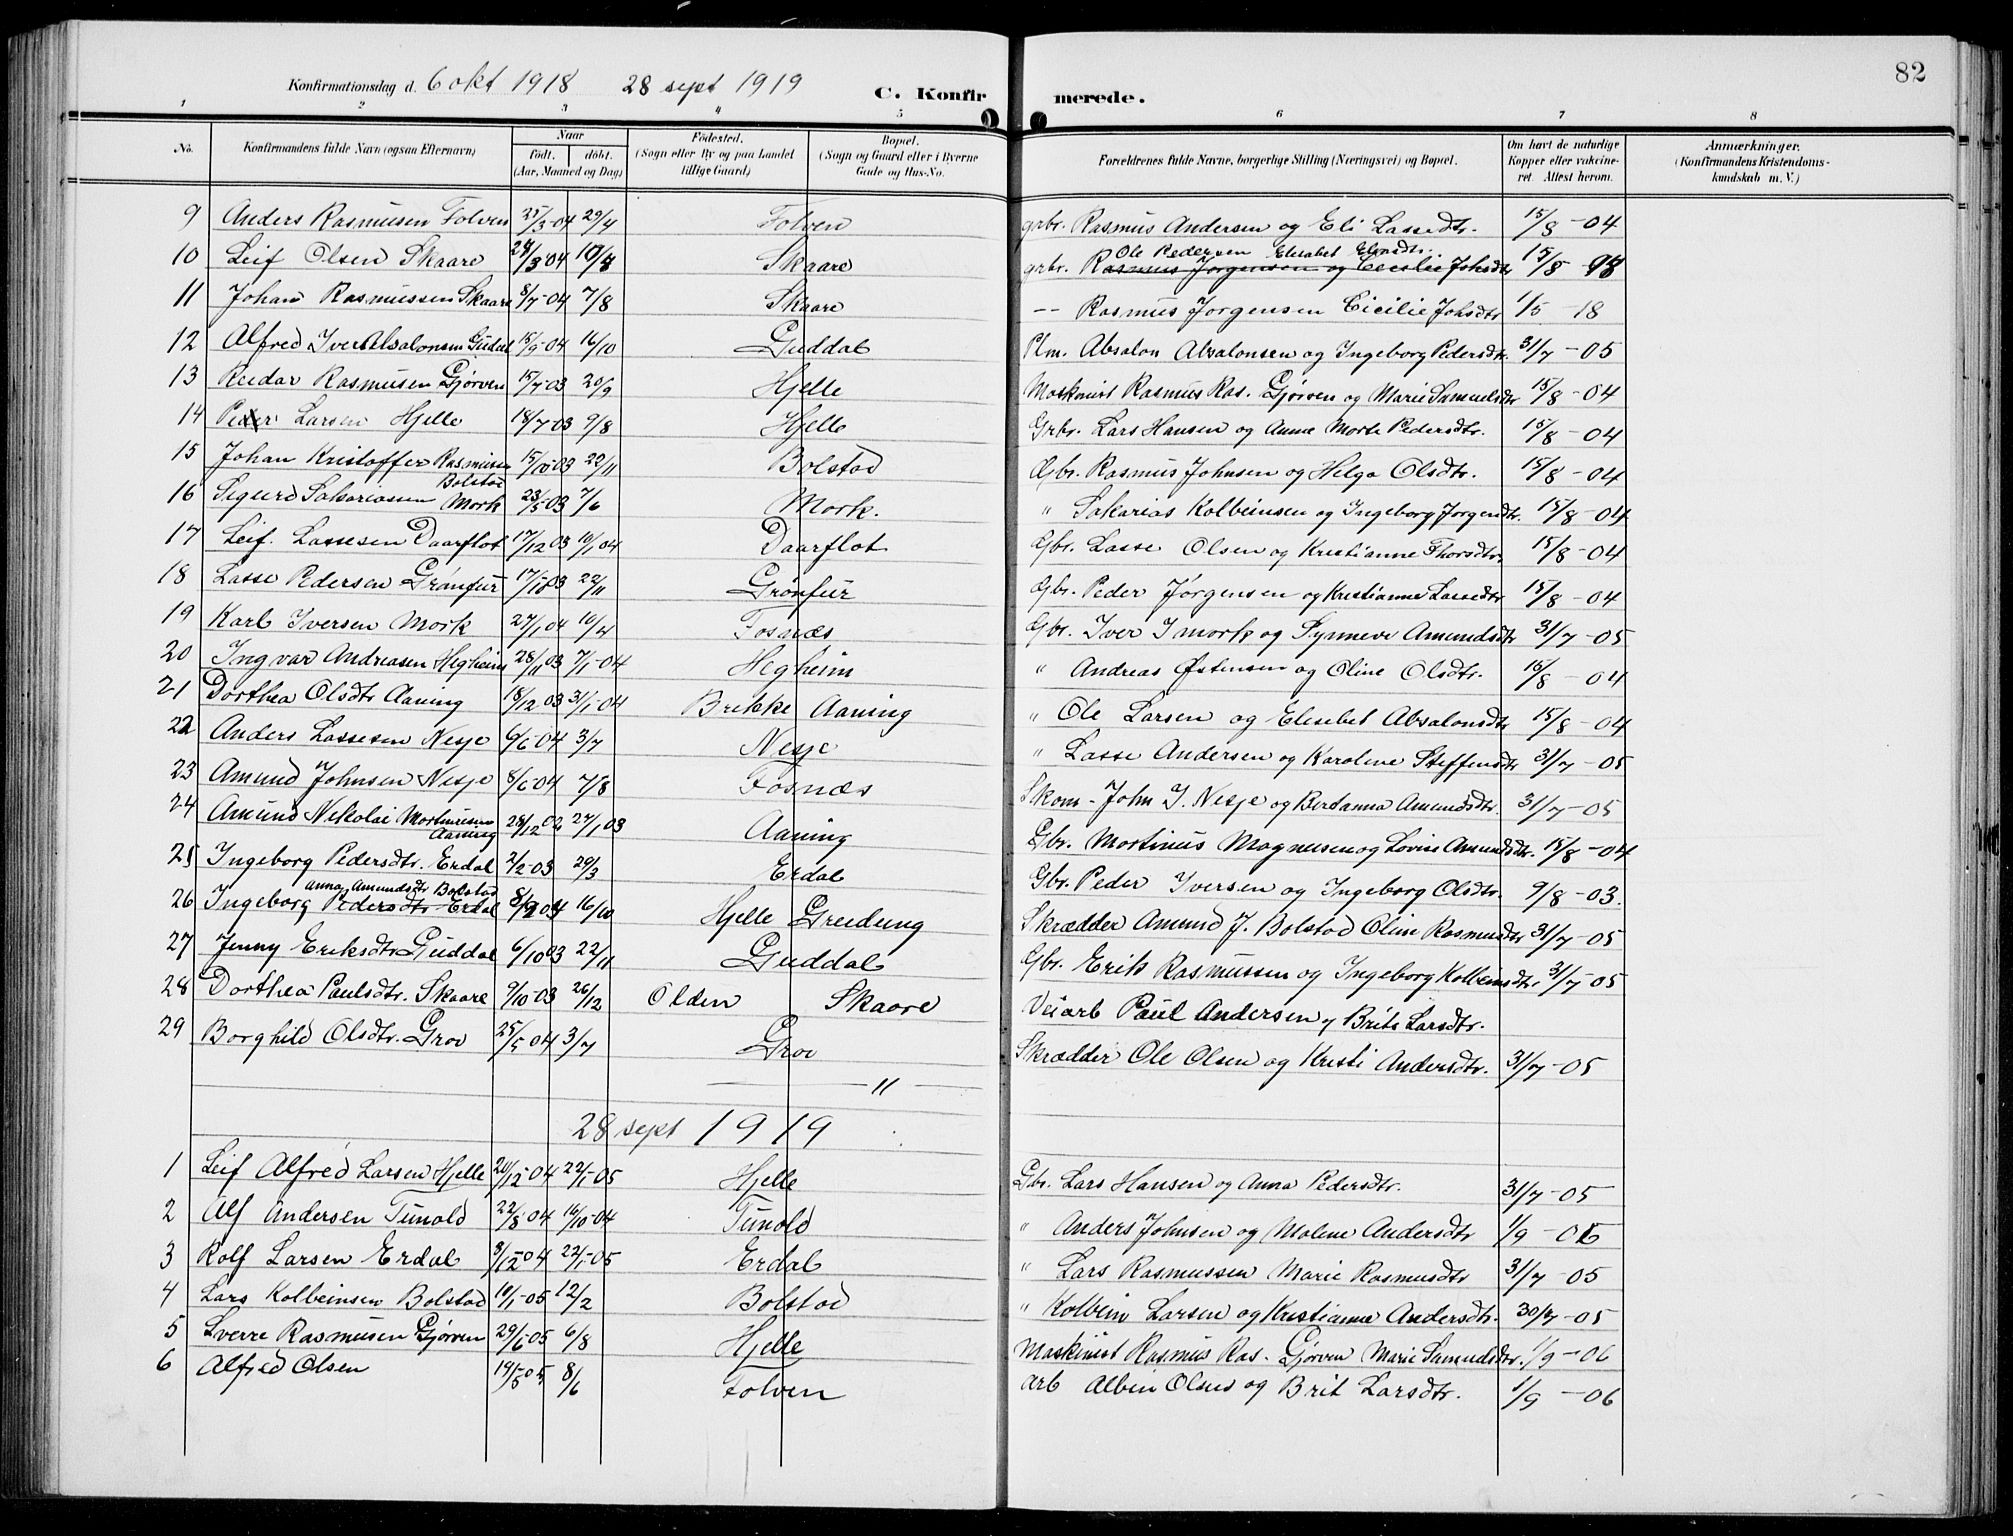 82
Konfirmationsdag d. 6 okt 1918 28 sept 1919 C. Konfirmerede.
1 2 3 4 5 6 7 8
No. Konfirmandens fulde Navn (ogsaa Efternavn) Naar født. døbt. (Aar, Maaned og Dag) Fødested. (Sogn eller By og paa Landet tillige Gaard) Bopæl. (Sogn og Gaard eller i Byerne Gade og Hus-No. Forældrenes fulde Navne, borgerlige Stilling (Næringsvei) og Bopæl. Om havt de naturlige Kopper eller vakcineret. Attest herom. Anmærkninger. (Konfirmandens Kristendomskundskab m. V.)
9 Anders Rasmusen Folven 25/3-04 29/4 Folven grbr. Rasmus Andersen og Eli Lassedtr. 15/8-04
10 Leif Olsen Skaare 28/3 04 Skaare grbr. Ole Pedersen Elisabet Elendtr. Rasmus Jørgensen og Cecilie Johsdtr 15/8
11 Johan Rasmussen Skaare 8/7-04 7/8 Skaare -- Rasmus Jørgensen Cicilie Johsdtr 1/5-18
12 Alfred Iver Absalonsen Guddal 15/9-04 16/10 Guddal Plm. Absalon Absalonsen og Ingeborg Pedersdtr. 31/7-05
13 Reidar Rasmusen Gjørven 15/7-03 20/9 Hjelle Maskinist Rasmus Ras. Gjørven og Marie Samuelsdtr 15/8-04
14 Peder Larsen Hjelle 18/7-03 9/8 Hjelle Grbr. Lars Hansen og Anna Marte Pedersdtr. 15/8-04
15 Johan Kristoffer Rasmusen Bolstad 15/10-03 22/11 Bolstad Gbr. Rasmus Johnsen og Helga Olsdtr. 15/8-04
16 Sigurd Sakariasen Mork 23/5-03 7/6 Mork. " Sakarias Kolbeinsen og Ingeborg Jørgendtr. 15/8-04
17 Leif. Lassesen Daarflot 17/12 03 10/1 04 Daarflot Gbr. Lasse Olsen og Kristianne Thorsdtr. 15/8-04
18 Lasse Pedersen Grønfur 17/10 03 22/11 Grønfur Gbr. Peder Jørgensen og Kristianne Lassedtr 15/8-04
19 Karl Iversen Mork 27/1 04 10/4 Fosnæs Gbr. Iver I mork og Synneve Amundsdtr 31/7-05
20 Ingvar Andreasen Hegheim 28/11 03 7/1-04 Hegheim " Andreas Østensen og Oline Olsdtr. 16/8-04
21 Dorthea Olsdtr Aaning 18/12 03 31/1-04 Brekke Aaning " Ole Larsen og Elisebet Absalonsdtr 15/8-04
22 Anders Lassesen Nesje 6/6-04 3/7 Nesje " Lasse Andersen og Karoline Steffensdtr 31/7-05
23 Amund Johnsen Nesje 8/6-04 7/8 Fosnæs Skom- John J. Nesje og Bertanna Amundsdtr. 31/7-05
24 Amund Nikolai Martinusen Aaning 28/12 02 27/1 03 Aaning Gbr. Martinus Magnusen og Lovise Amundsdtr. 15/8-04
25 Ingeborg Pedersdtr. Erdal 2/2-03 29/3 Erdal Gbr. Peder Iversen og Ingeborg Olsdtr. 9/8-03.
26 Ingeborg Anna Amundsdtr Bolstad Pedersdtr Erdal 16/10 Hjelle Greidung Skrædder Amund J. Bolstad Oline Rasmusdtr 31/7-05
27 Jenny Eriksdtr Guddal 6/10 03 22/11 Guddal Gbr. Erik Rasmussen og Ingeborg Kolbeinsdtr. 31/7-05
28 Dorthea Paulsdtr. Skaare 9/10-03 26/12 Olden Skaare Veiarb Paul Andersen og Brite Larsdtr.
29 Borghild Olsdtr. Grov 25/5 04 3/7 Grov Skrædder Ole Olsen og Kristi Andersdtr. 31/7-05
— " —
28 sept 1919
1 Leif Alfred Larsen Hjelle 20/12-04 22/1-05 Hjelle Gbr. Lars Hansen og Anna Pedersdtr. 31/7-05
2 Alf Andersen Tunold 22/8 04 16/10-04 Tunold " Anders Johnsen og Malene Andersdtr 1/9-06
3 Rolf Larsen Erdal 3/12-04 22/1-05 Erdal " Lars Rasmussen Marie Rasmusdtr 31/7-05
4 Lars Kolbeinsen Bolstad 10/1-05 12/2 Bolstad " Kolbein Larsen og Kristianne Andersdtr. 30/7-05
5 Sverre Rasmusen Gjørven 29/6-05 6/8 Hjelle Maskinist Rasmus Ras. Gjørven Marie Samuelsdtr. 1/9-06
6 Alfred Olsen 14/5 05 8/6 Folven arb Albin Olsen og Brit Larsdtr. 1/9-06